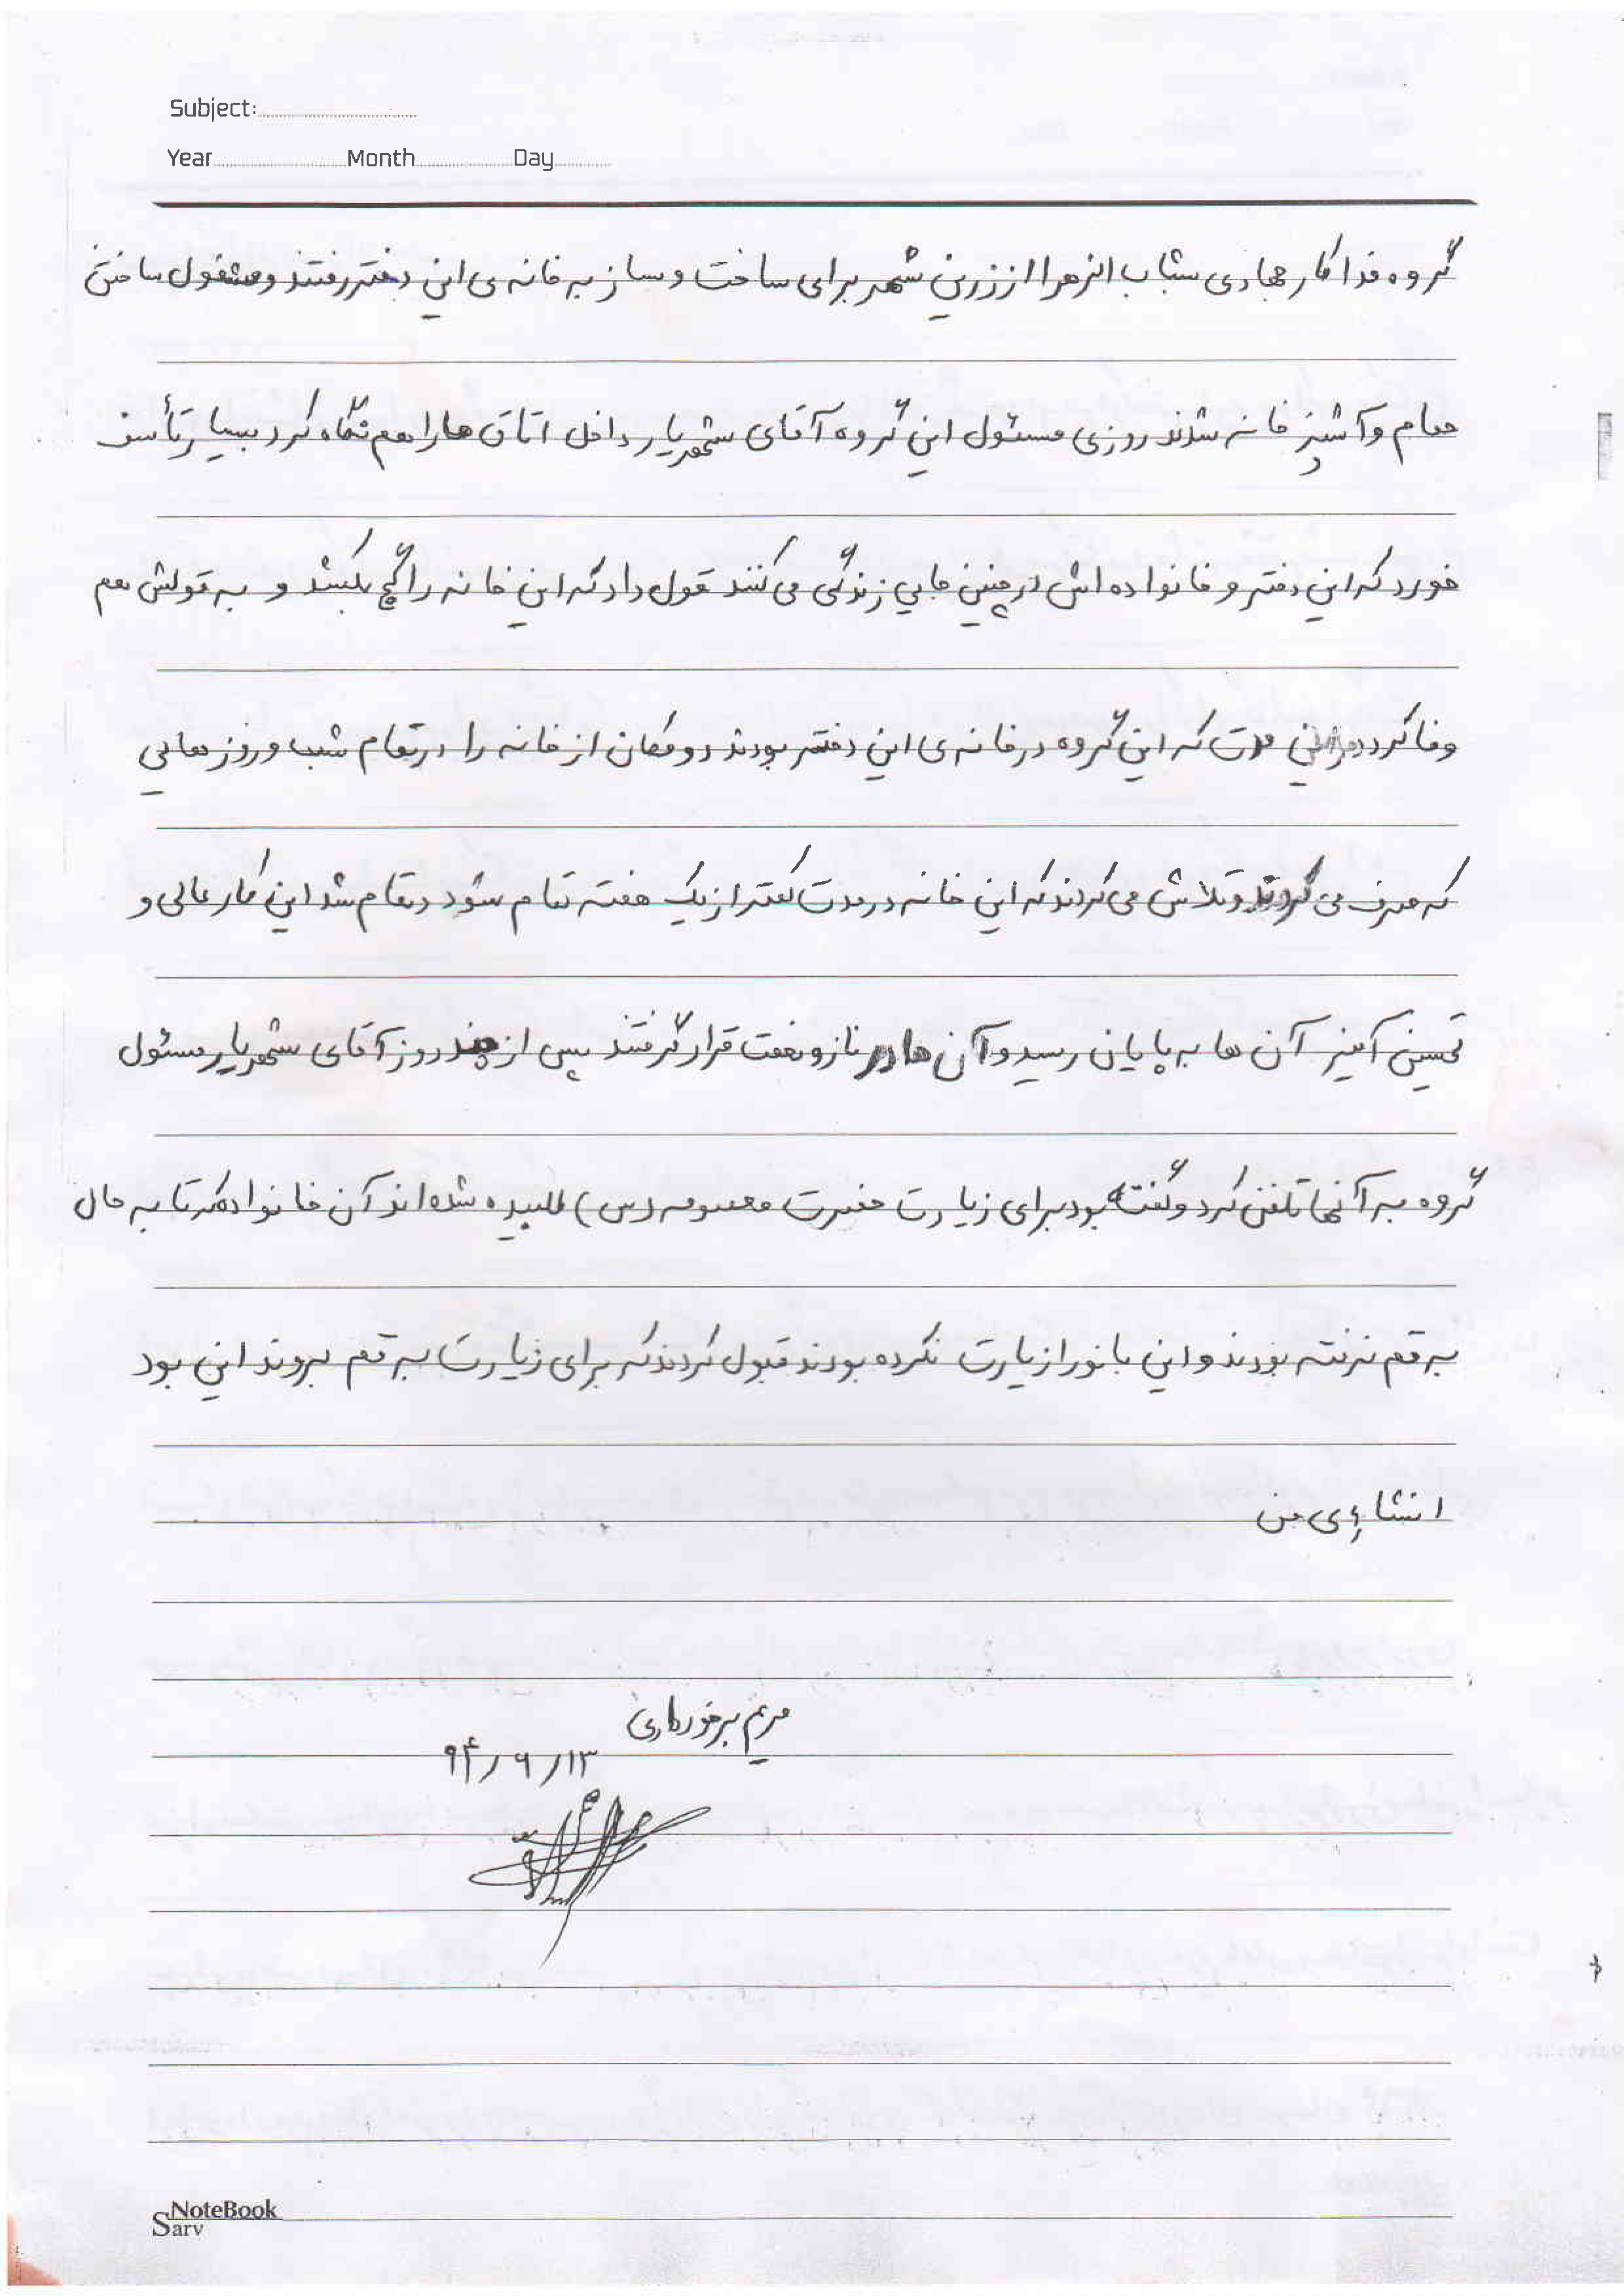 Subject:
Year Month Day
گروه فدا کار جهادی شباب الزهرا از زرین شهر برای ساخت و ساز به خانه ی این دختر رفتند و مشغول ساختن
حمام و آشپز خانه شدند روزی مسئول این گروه آقای شهریار داخل اتاق ها را هم نگاه کرد بسیار تأسف
خورد که این دختر و خانواده اش در چنین جایی زندگی می کنند قول داد که این خانه را گچ بکشد و به قولش هم
وفا کرد در این مدت که این گروه در خانه ی این دختر بودند دو مکان از خانه را در تمام شب و روز هایی
که صرف می کردند و تلاش می کردند که این خانه در مدت کمتر از یک هفته تمام شود و تمام شد این کار عالی و
تحسین آمیز آن ها به پایان رسید و آن ها در ناز و نعمت قرار گرفتند پس از چند روز آقای شهریار مسئول
گروه به آنها تلفن کرد و گفته بود برای زیارت حضرت معصومه (س) طلبیده شده اند آن خانواده که تا به حال
به قم نرفته بودند و این بانو را زیارت نکرده بودند قبول کردند که برای زیارت به قم بروند این بود
انشاءی من
مریم برخورداری
۹۴/۶/۱۳
NoteBook
Sarv